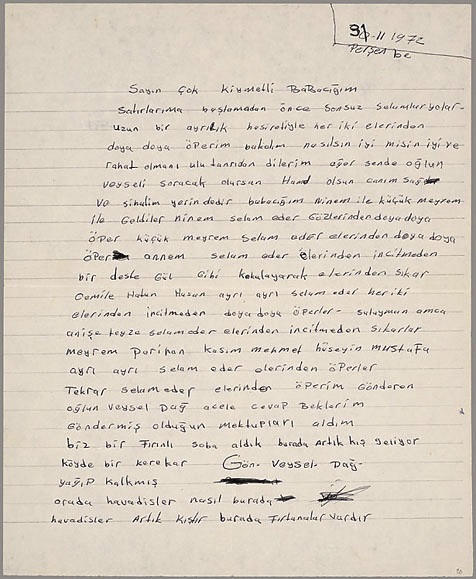 31
9-11 1972
Perşenbe
Sayın Çok Kıymetli Babacığım
Satırlarıma başlamadan önce sonsuz selamlur yolar-
uzun bir ayrılık hesiretiyle her iki elerinden
doya doya öperim bakalım nasılsın iyi misin iyi ve
rahat olmanı ulu tanrıdan dilerim ağer sende oğlun
veyseli soracak olursan Hamd olsun canım sağ
ve sıhalim yerindedir babacığım Ninem ile küçük meyrem
ile Geldiler ninem selam eder Gözlerinden doya doya
öper küçük meyrem Selam eder elerinden doya doya
öper annem selam eder elerinden incitmeden
bir deste Gül Gibi kokulayarak elerinden sıkar
Cemile Hatun Hasan ayrı ayrı selam eder her iki
elerinden incilmeden doya doya öperler- suluyman amca
anişe teyze selam eder elerinden incitmeden sıkarlar
meyrem Perihan Kasım mehmet hüseyin mustafa
ayrı ayrı selam eder elerinden öperler
Tekrar selam eder elerinden öperim Gönderen
oğlun Veysel Dağ acele cevap Beklerim
Göndermiş olduğun mektupları aldım
biz bir Fırınlı soba aldık burada Artık kış geliyor
köyde bir kere kar Gön- Veysel-Dağ-
yağıp kalkmış
orada havadisler nasıl burada
havadisler Artık kıştır burada Fırtanalar vardır